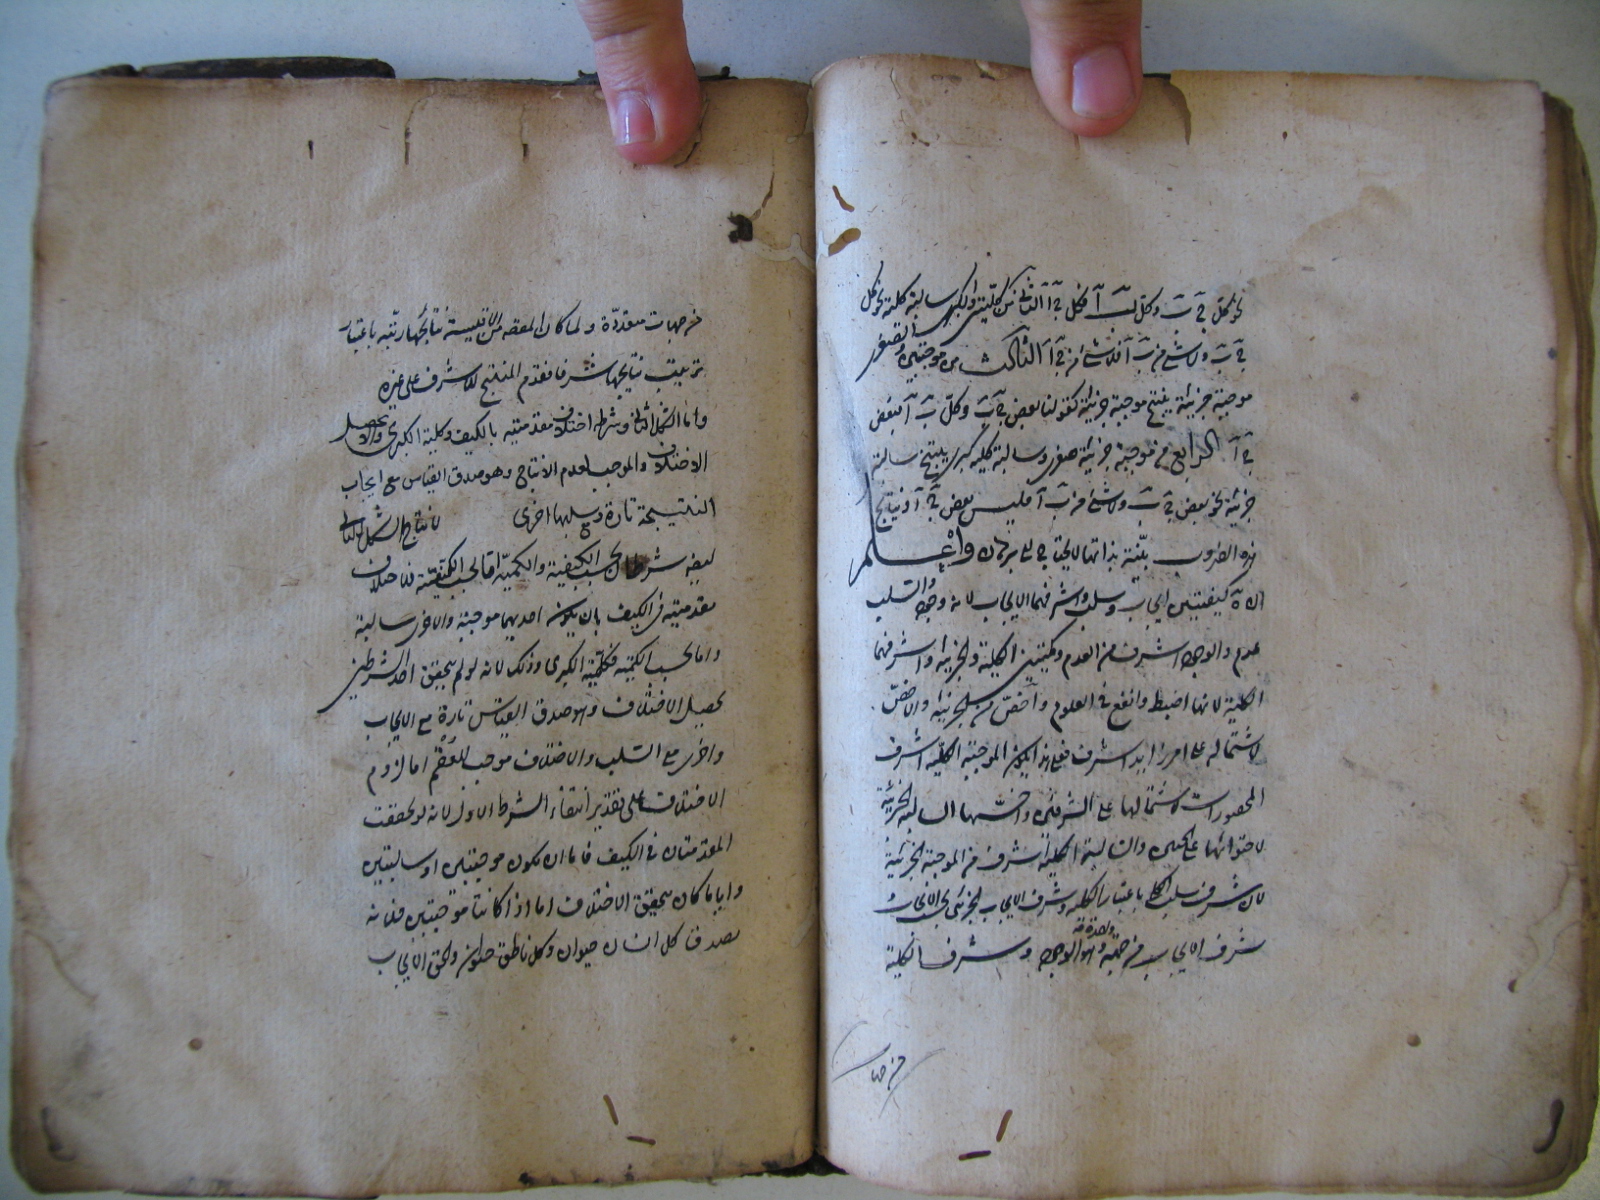 نحو كل ج ب وكل ب آ فكل ج آ الثانى من كليتين والكبرى سالبة كلية نحو كل
ج ب ولا شئ من ب آ فلا شئ من ج آ الثالث من موجبتين والصغرى
موجبة جزئية ينتج موجبة جزئية كقولنا بعض ج ب وكل ب آ فبعض
ج آ الرابع من موجبة جزئية صغرى وسالبة كلية كبرى ينتج سالبة
جزئية نحو بعض ج ب ولا شئ من ب آ فليس بعض ج آ ونتايج
هذه الضروب بيّنة بذاتها لا تحتاج الى برهان واعلم
ان كيفيتين ايجاب وسلب واشرفهما الايجاب لانه وجود والسلب
عدم والوجود اشرف من العدم وكميتين الكلية والجزئية واشرفهما
الكلية لانها اضبط وانفع فى العلوم واخص من الجزئية والاخص
لاشتماله على امر زايد اشرف فعلى هذا يكون الموجبة الكلية اشرف
المحصورات لاشتمالها على الشرفين واخسها السالبة الجزئية
لاحتوائها على الخستين والسالبة الكلية اشرف من الموجبة الجزئية
لان شرف سلب الكلى باعتبار الكلية وشرف الايجاب الجزئى بحسب الايجاب و
شرف الايجاب من جهة واحدة وهو الوجود وشرف الكلية
من جهات
من جهات متعددة ولما كان المقصد من الاقيسة نتايجها رتبه باعتبار
ترتيب نتايجها شرفا فقدم المنتج للاشرف على غيره
واما الشكل الثانى وشرطه اختلاف مقدمتيه بالكيف وكلية الكبرى والا حصل
الاختلاف والموجب لعدم الانتاج وهو صدق القياس مع ايجاب
النتيجة تارة وسلبها اخرى لانتاج الشكل الثانى
ايضه شرطان بحسب الكيفية والكمية اما بحسب الكيفية فاختلاف
مقدمتيه فى الكيف بان يكون احديهما موجبة والاخرى سالبة
واما بحسب الكمية فكلية الكبرى وذلك لانه لو لم يتحقق احد الشرطين
تحصيل الاختلاف وهو صدق القياس تارة مع الايجاب
واخرى مع السلب والاختلاف موجب للعقم اما لزوم
الاختلاف على تقدير انتفاء الشرط الاول لانه لو تحققت
المقدمتان فى الكيف فاما ان يكون موجبتين او سالبتين
وايا ما كان يتحقق الاختلاف اما اذا كانتا موجبتين فلانه
يصدق كل انسان حيوان وكل ناطق حيوان والحق الايجاب